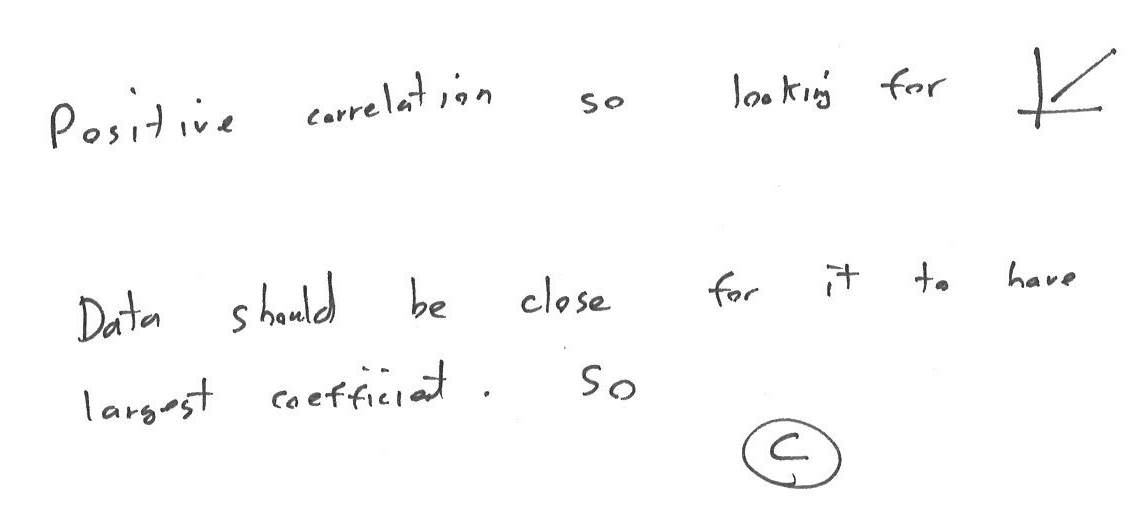 Positive correlation so looking for
Data should be close for it to have
largest coefficient. So
C